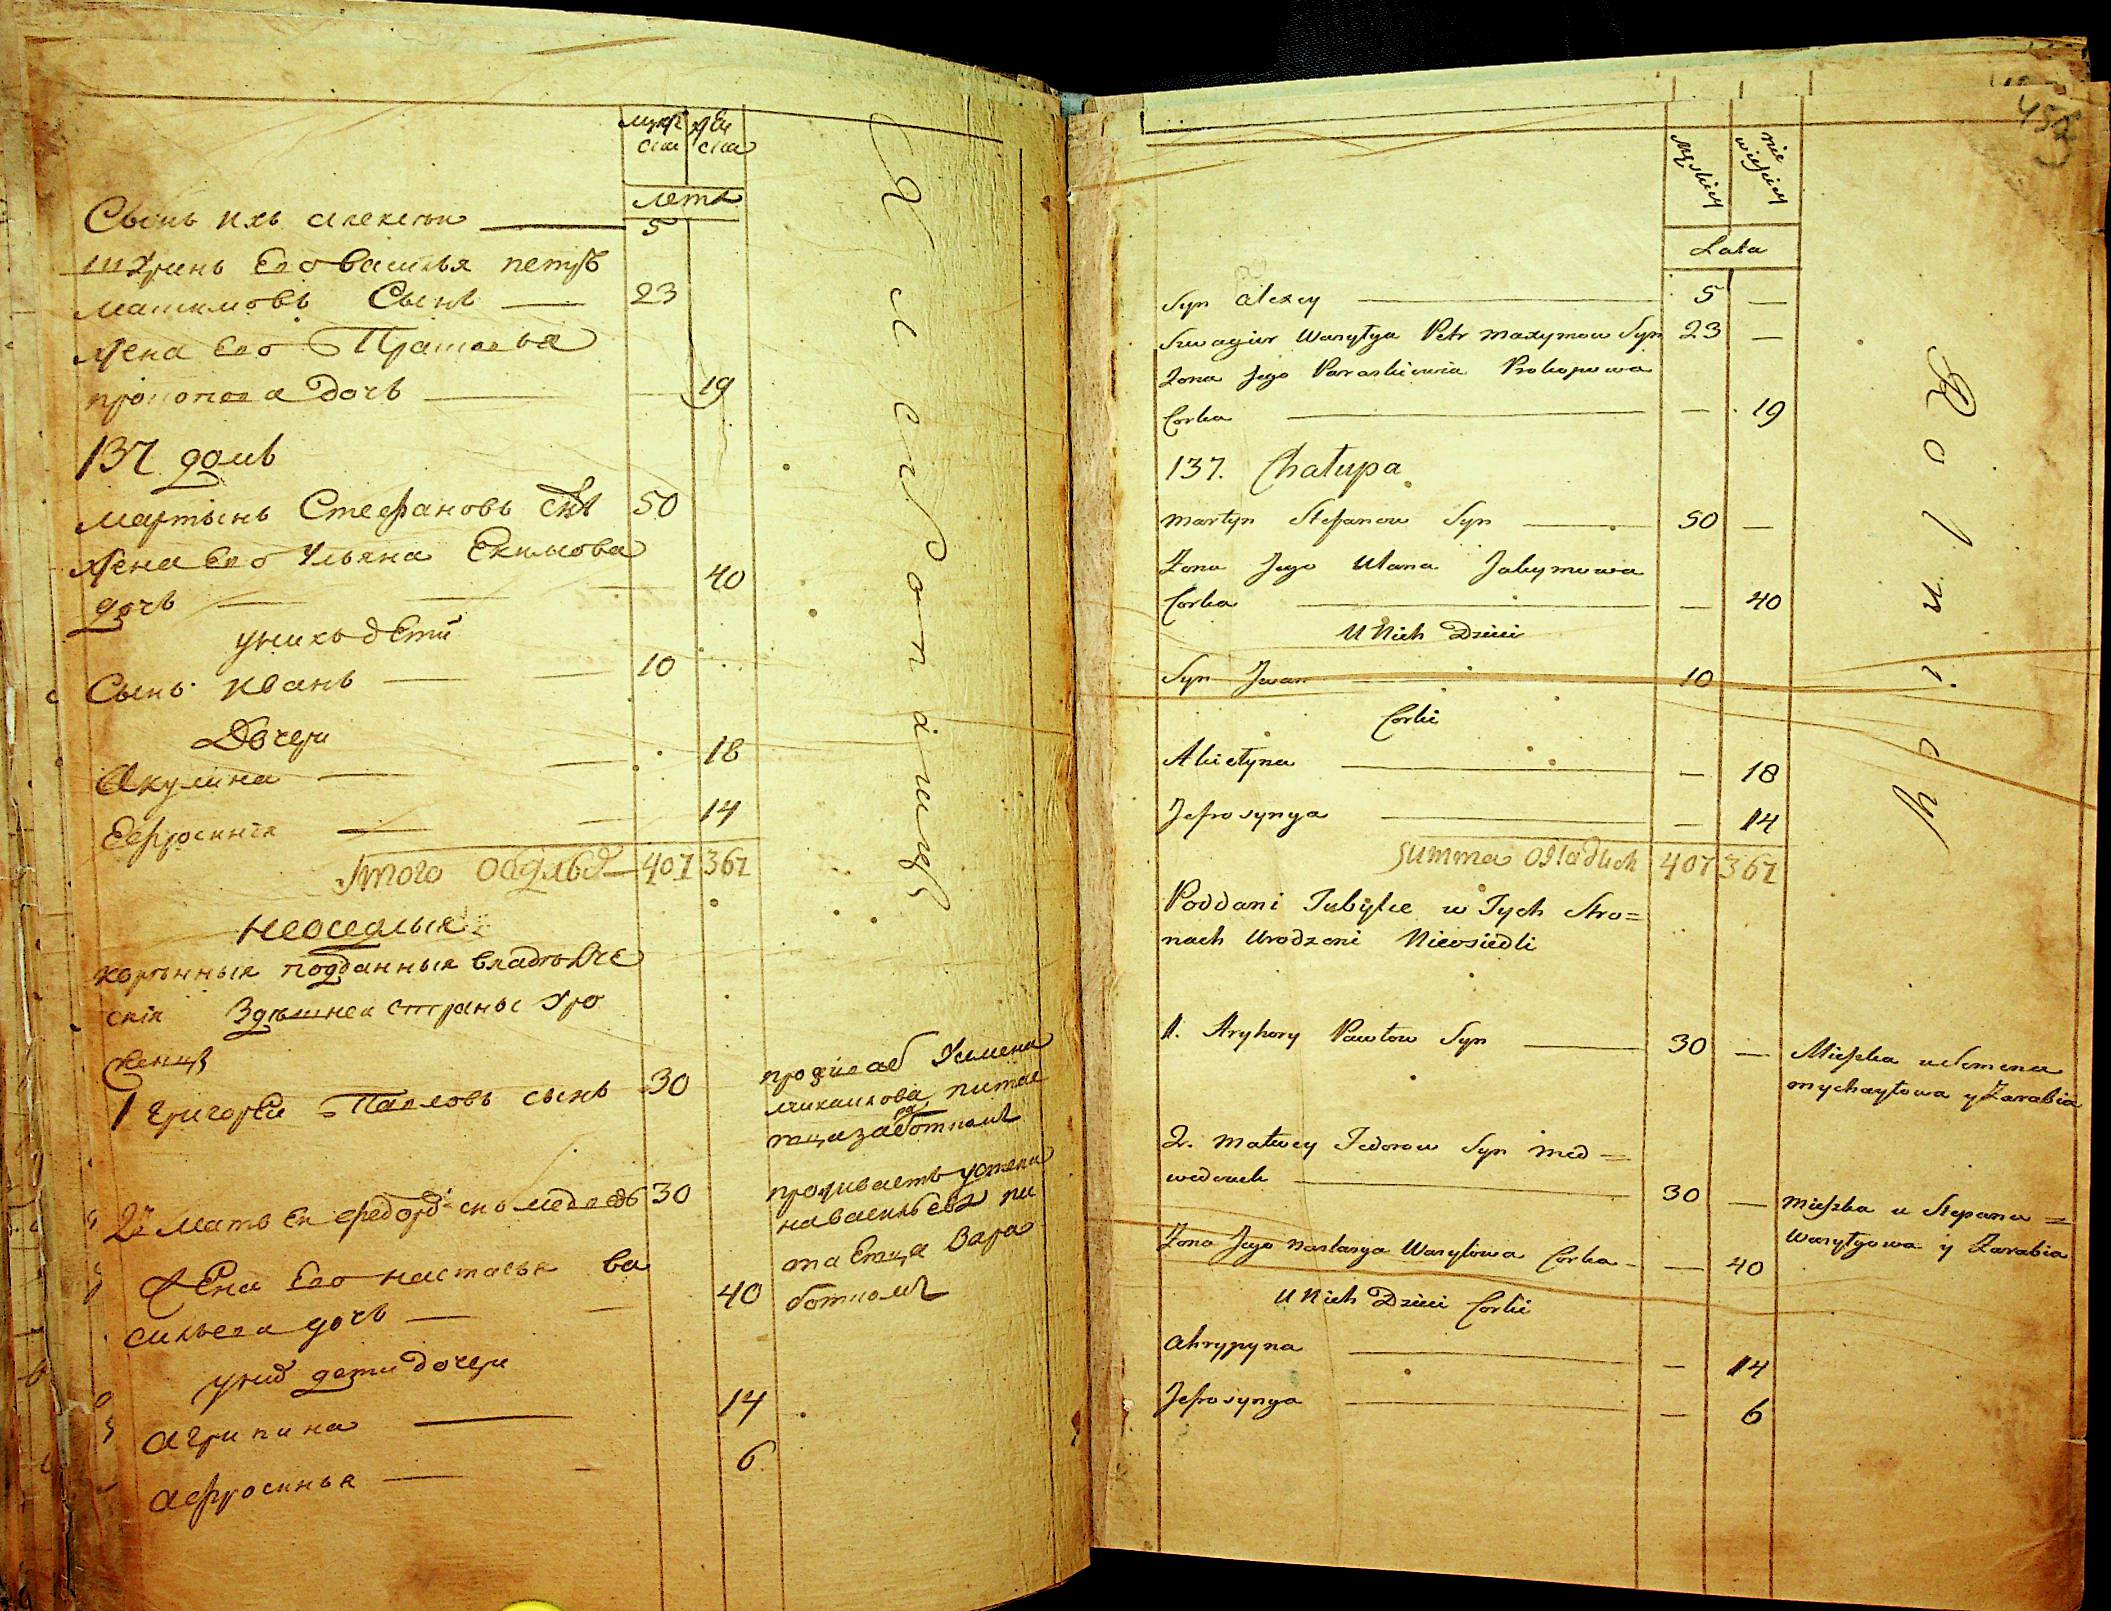 мужс жен
ска ска
лета
Сынъ ихъ алексеи 5
шуринъ Его василья петръ
максимовъ Сынъ 23
жена Его Прасковья
прокопова дочь 19
137 домъ
мартынъ Стефановъ Снъ 50
жена Его Ульяна Екимова
дочь 40
унихъ дети
Сынъ Иванъ 10
Дочери
Акулина 18
Ефросиния 14
Итого 407 367
неоседлыя
коренныя подданныя владельче
ския Здешнеи Страны Уро
женцы
1 Григореи Павловъ сынъ 30
Усимена
михаилова питае
тца заработкомъ
2 Матвеи федоровъ снъ медведь 30
проживаетъ устепа
на васильева пи
таетца Зара
боткомъ
жена Его настасья ва
сильева дочь 40
унихъ дети дочери
агрипина 14
афросинья 6
хлебопашцы
452
Męskiey
nie
wieściey
Lata
Syn Alexey 5 —
Szwagier Wasylya Petr Maxymow Syn 23 —
Zona Jego Paraskiewia Prokopowa
Corka — 19
137. Chałupa
Martyn Stefanow Syn 50 —
Zona Jego Ulana Jakymowa
Corka — 40
U Nich Dzieci
Syn Jwan 10
Corki
Akietyna — 18
Jefrosynya — 14
Summa Osiadłych 407 367
Poddani Tubylce w Tych Stro=
nach Urodzeni Nieosiedli
1. Hryhory Pawłow Syn 30 —
Mieszka u Semena
Mychayłowa y Zarabia
2. Matwey Fedorow Syn Med=
wedensk 30 —
Mieszka u Stepana =
Wasylyowa y Zarabia
Zona Jego Nastasya Wasylowa Corka — 40
U Nich Dzieci Corki
Ahrypyna — 14
Jefrosynya — 6
Rolnicy